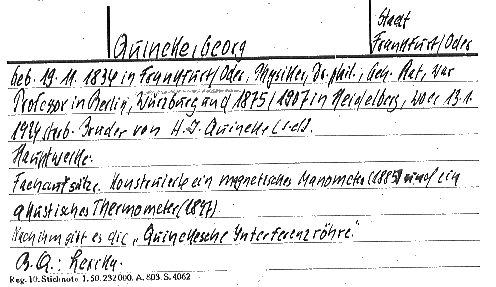 Stadt
Quincke Georg
Frankfurt/Oder
geb. 19.11.1834 in Frankfurt/Oder, Physiker, Dr. phil., Geh. Rat, war
Professor in Berlin, Würzburg und 1875/1907 in Heidelberg, wo er 13.1.
1924 starb. Bruder von H. I. Quincke (s.d.).
Hauptwerke:
Fachaufsätze. Konstruierte ein magnetisches Manometer (1885) und ein
akustisches Thermometer (1897).
Nach ihm gibt es die „Quinckesche Interferenzröhre."
B. Q.: Lexika.
Reg. 10. Stichnote 1. 50. 232000. A. 803. S. 4062